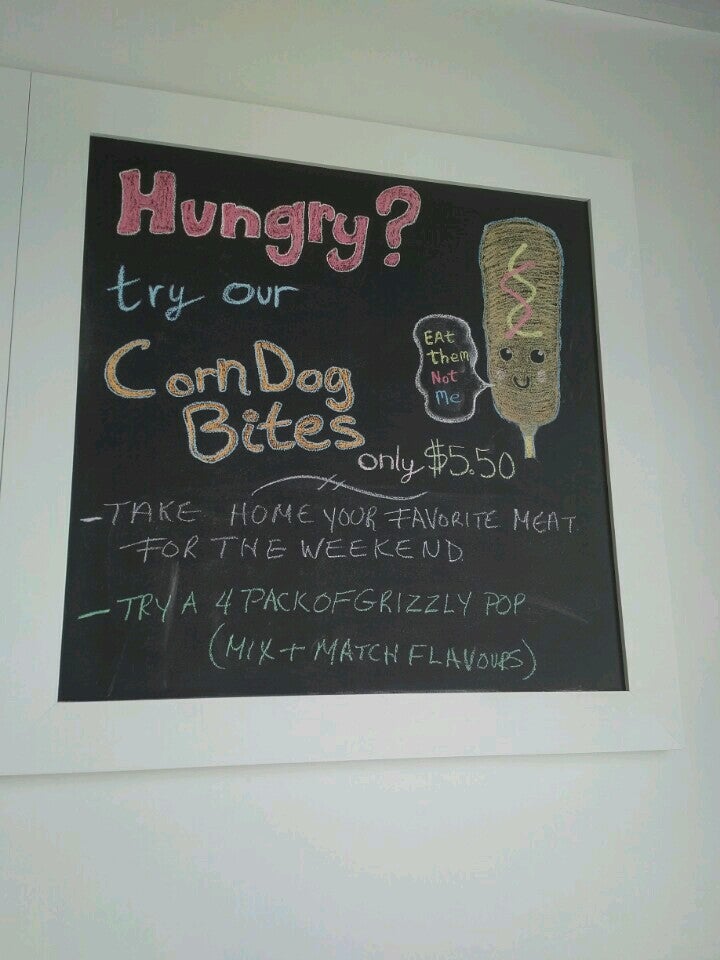 Hungry?
try our
Corn Dog
Bites
only $5.50
EAt
them
Not
Me
- TAKE HOME YOUR FAVORITE MEAT
FOR THE WEEKEND
- TRY A 4 PACK OF GRIZZLY POP
(MIX + MATCH FLAVOURS)